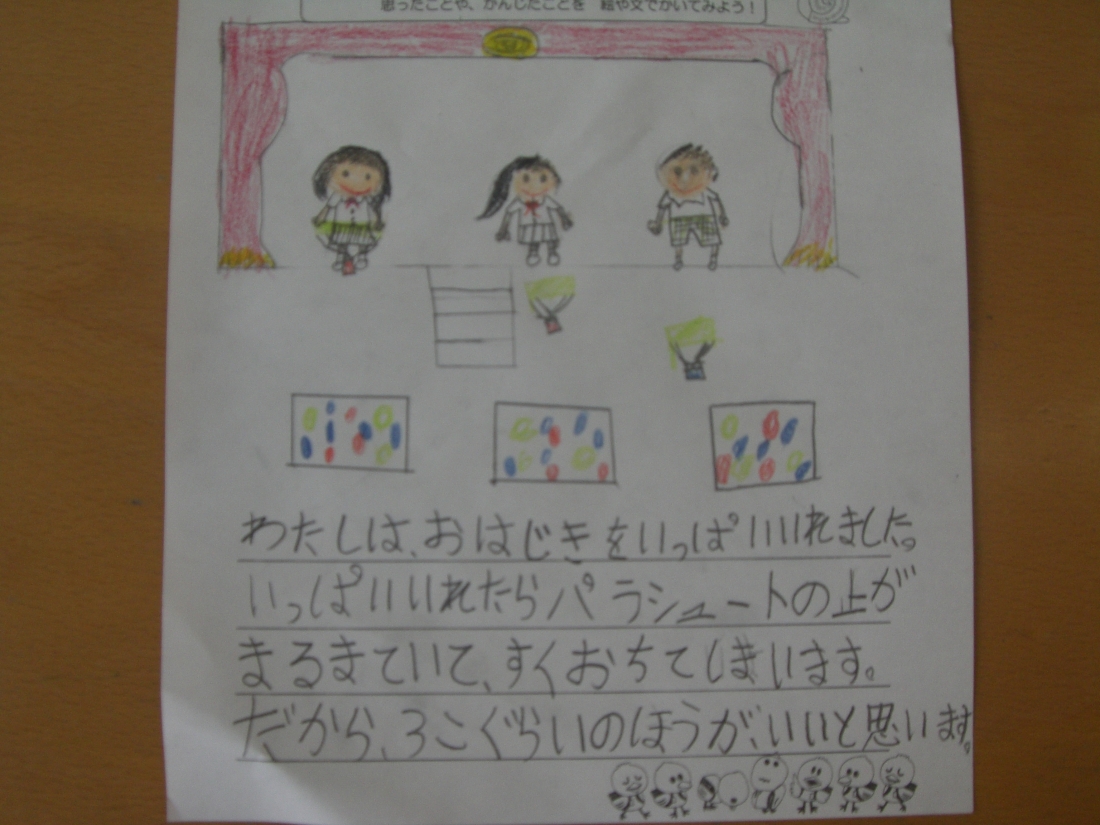 思ったことや、かんじたことを 絵や文でかいてみよう！
わたしは、おはじきをいっぱいいれました。
いっぱいいれたらパラシュートの上が
まるまていて、すくおちてしまいます。
だから、3こぐらいのほうが、いいと思います。